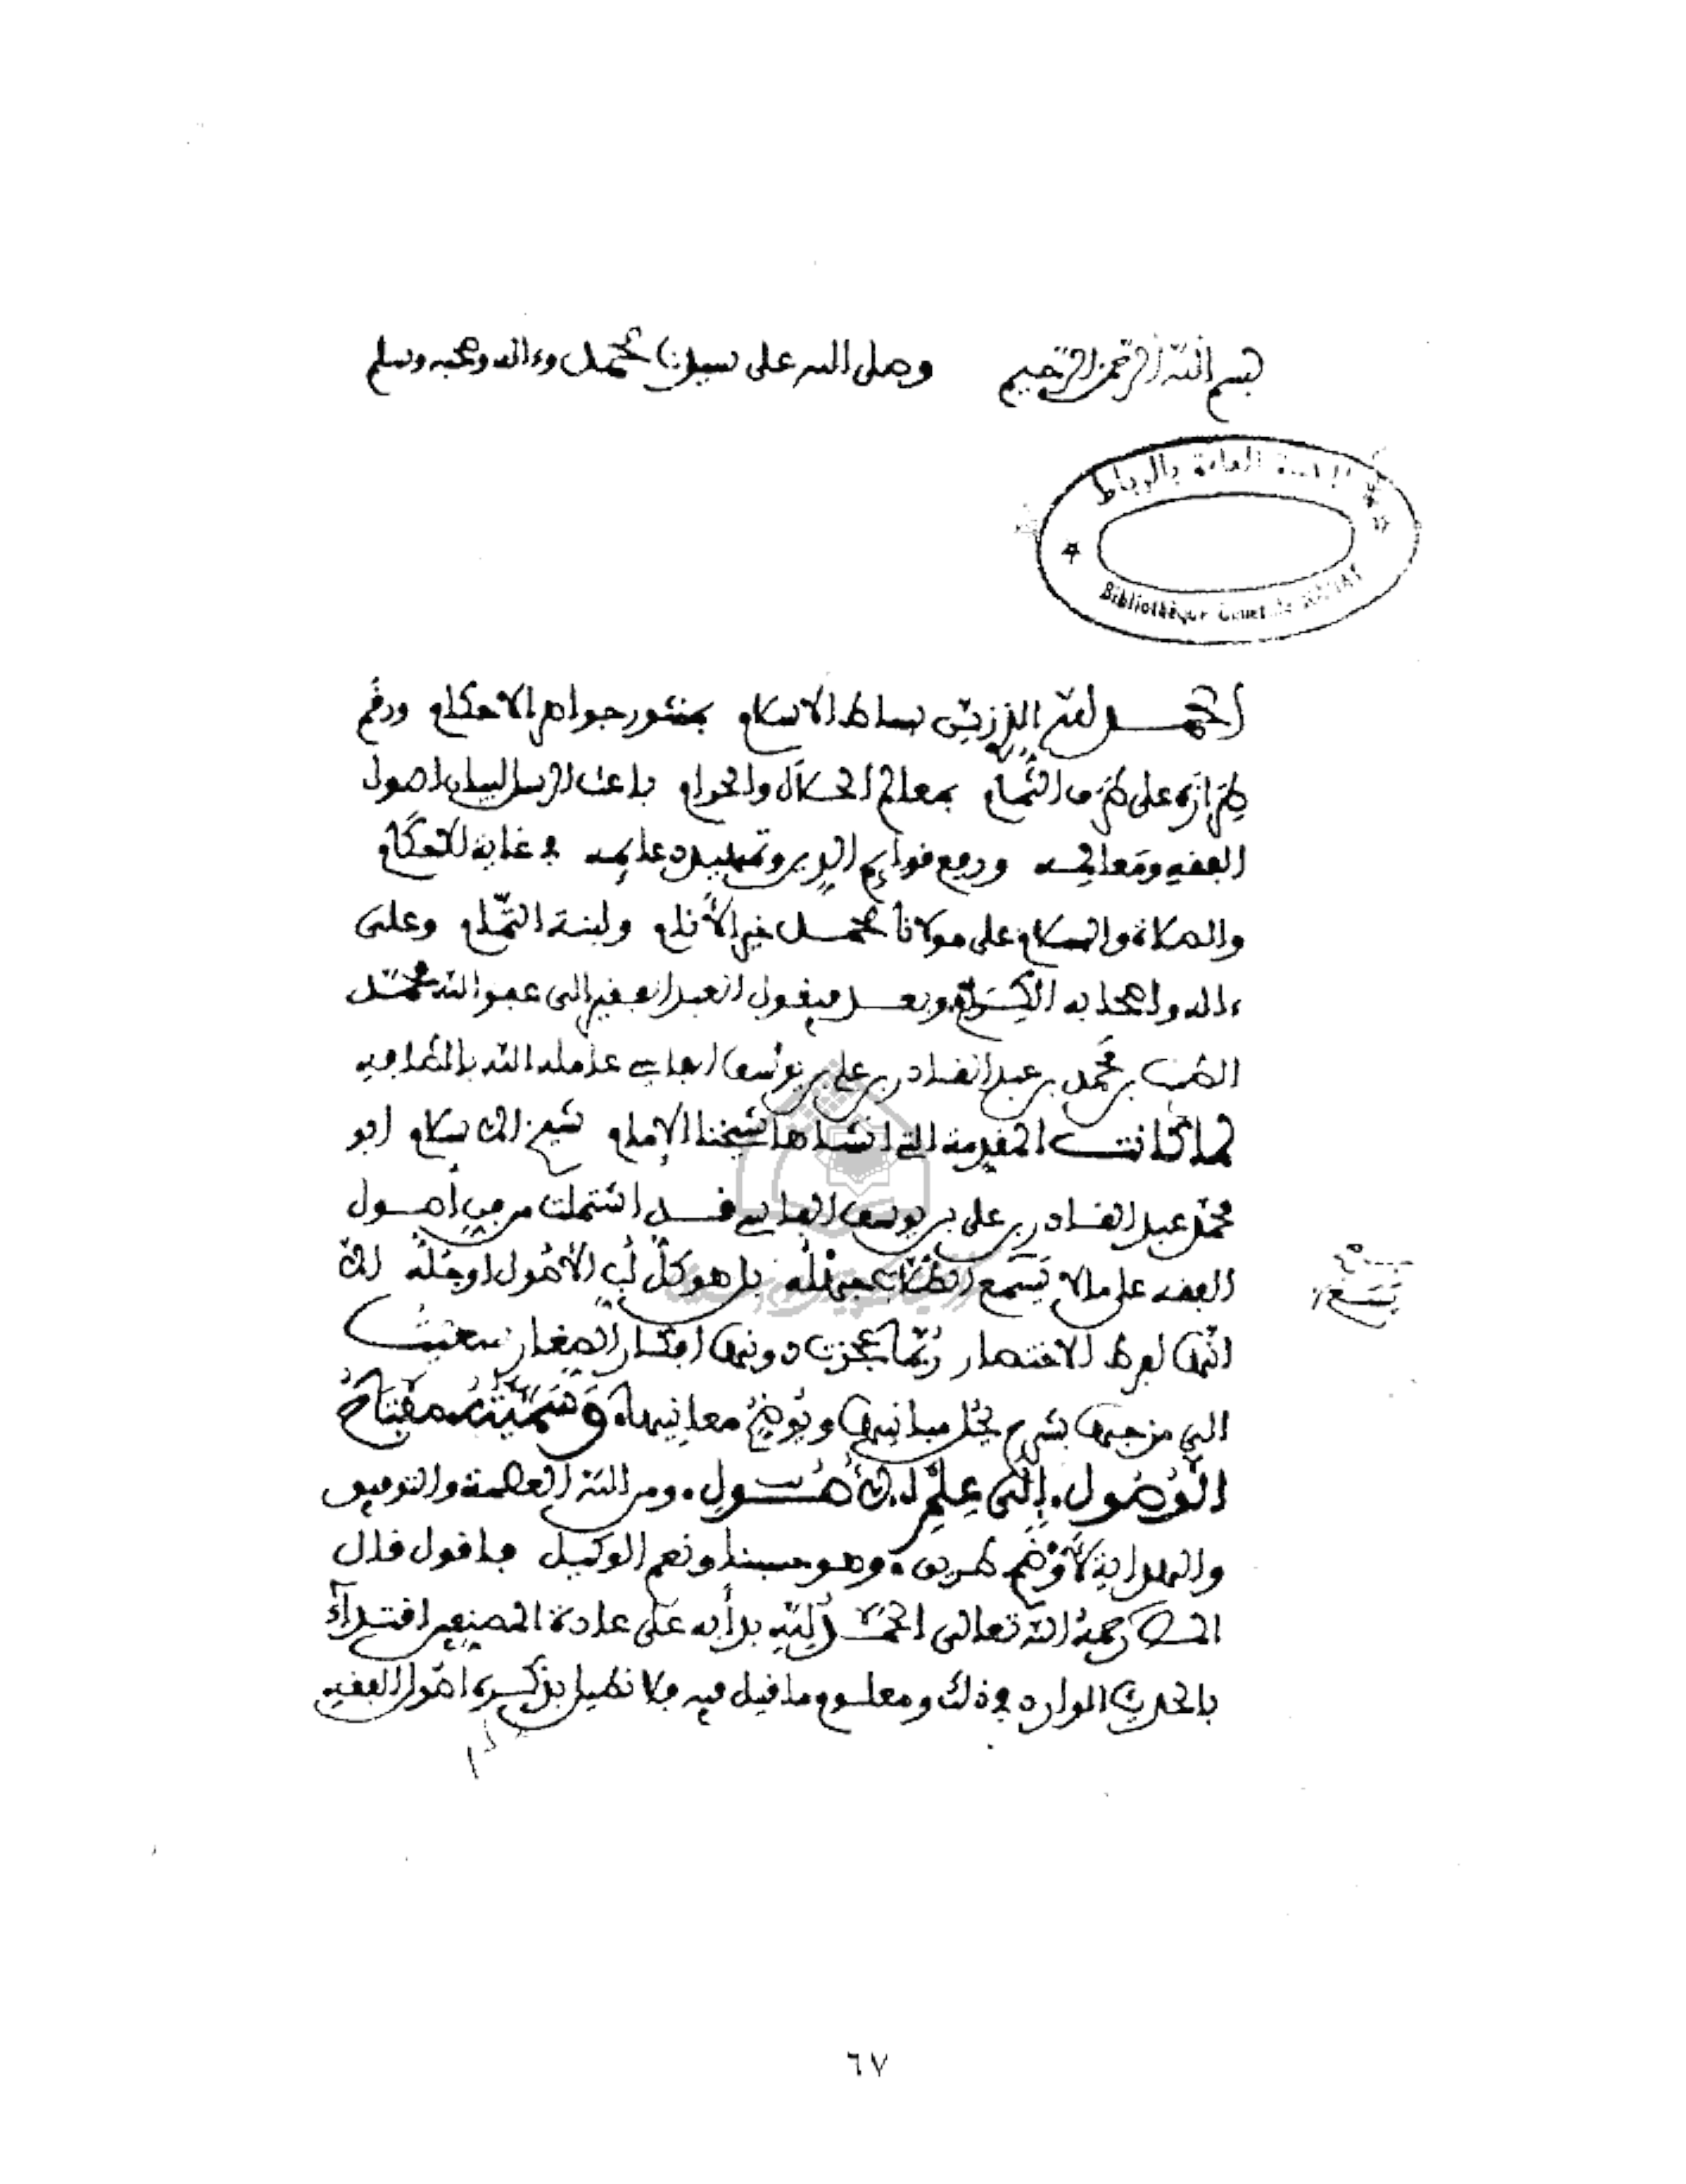 بسم الله الرحمن الرحيم وصلى الله على سيدنا محمد وءاله وصحبه وسلم
الخزانة العامة بالرباط
Bibliothèque
الحمد لله الذى زين بساط الاسلام بمنثور جواهر الاحكام ورقم
طرازه على طرف الثمام بمعالم الحلال والحرام باعث الرسل لبيان اصول
الفقه ومعالمه ورفع قوايم الدين وتمهيد دعايمه فى غاية الاحكام
والصلاة والسلام على مولانا محمد خير الأنام ولبنة التمام وعلى
ءاله واصحابه الكرام وبعد فيقول العبد الفقير الى عفو الله محمد
الطيب بن محمد بن عبد القادر بن على بن يوسف الفاسى عامله الله بالطافه
لما كانت المقدمة التى انشاها شيخنا الإمام شيخ الاسلام ابو
محمد عبد القادر بن على بن يوسف الفاسى قد اشتملت من فن أصول
الفقه على ما لا يسع الطالب جهله بل هو كل لب الأصول او جله الا
انها لفرط الاختصار ربما عجزت دونها افكار الصغار سعيت
الى مزجها بشرح يحل مبانيها ويوضح معانيها وسميته مفتاح
الوصول إلى علم الأصول ومن الله العصمة والتوفيق
والهداية لأوضح طريق وهو حسبنا ونعم الوكيل فاقول قال
رحمه الله تعالى الحمد لله بدأ به على عادة المصنفين اقتداء
بالحديث الوارد فى ذلك ومعلوم ما قيل فيه فلا نطيل بذكره اصول الفقه
يسع
٦٧